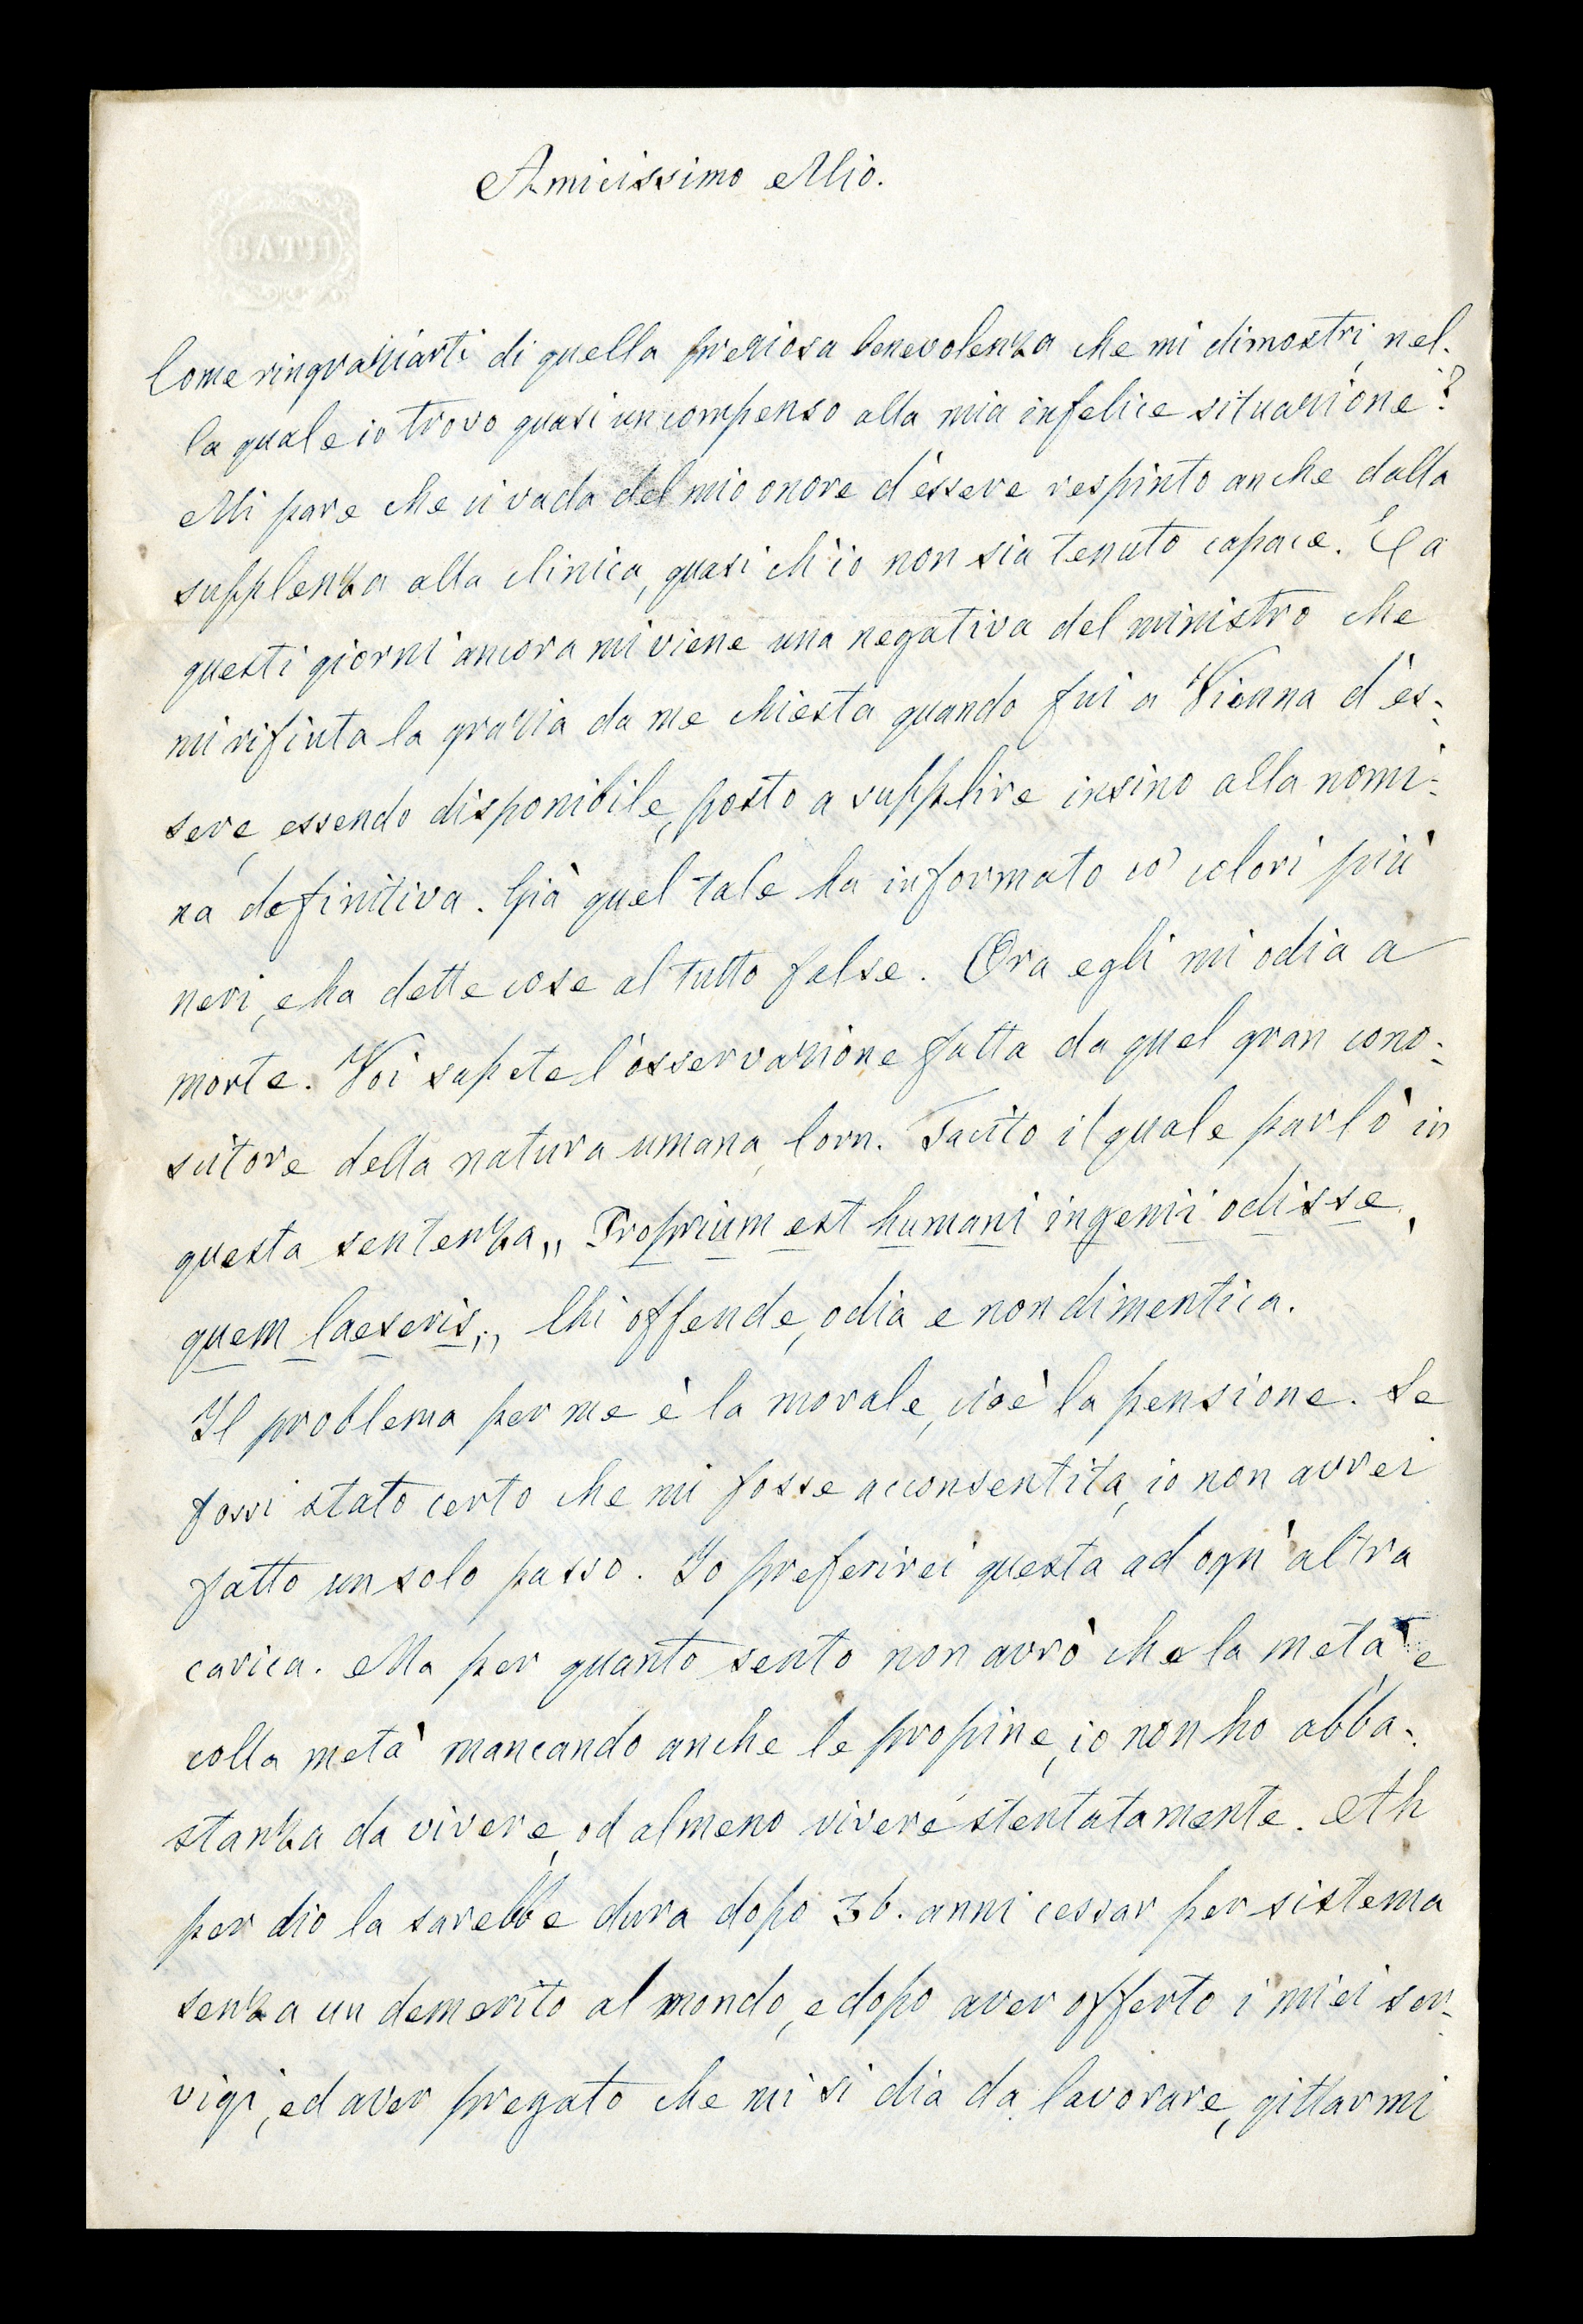 BATH
Amicissimo Mio.
Come ringraziarti di quella preziosa benevolenza che mi dimostri, nel-
la quale io trovo quasi un compenso alla mia infelice situazione?
Mi pare che ci vada del mio onore d'essere respinto anche dalla
supplenza alla clinica, quasi ch'io non sia tenuto capace. E a
questi giorni ancora mi viene una negativa del ministro che
mi rifiuta la grazia da me chiesta quando fui a Vienna d'es-
sere, essendo disponibile, posto a supplire insino alla nomi-
na definitiva. Già quel tale ha informato co' colori più
neri, e ha dette cose al tutto false. Ora egli mi odia a
morte. Voi sapete l'osservazione fatta da quel gran cono-
scitore della natura umana, Corn. Tacito il quale parlò in
questa sentenza „ Proprium est humani ingenii odisse,
quem laeseris „ Chi offende, odia e non dimentica.
Il problema per me è la morale, cioè la pensione. Se
fossi stato certo che mi fosse acconsentita, io non avrei
fatto un solo passo. Io preferirei questa ad ogn'altra
carica. Ma per quanto sento non avrò che la metà, e
colla metà mancando anche le propine, io non ho abba-
stanza da vivere, od almeno vivere stentatamente. Ah
per dio la sarebbe dura dopo 36. anni cessar per sistema
senza un demerito al mondo, e dopo aver offerto i miei ser-
vigi, ed aver pregato che mi si dia da lavorare, gittarmi